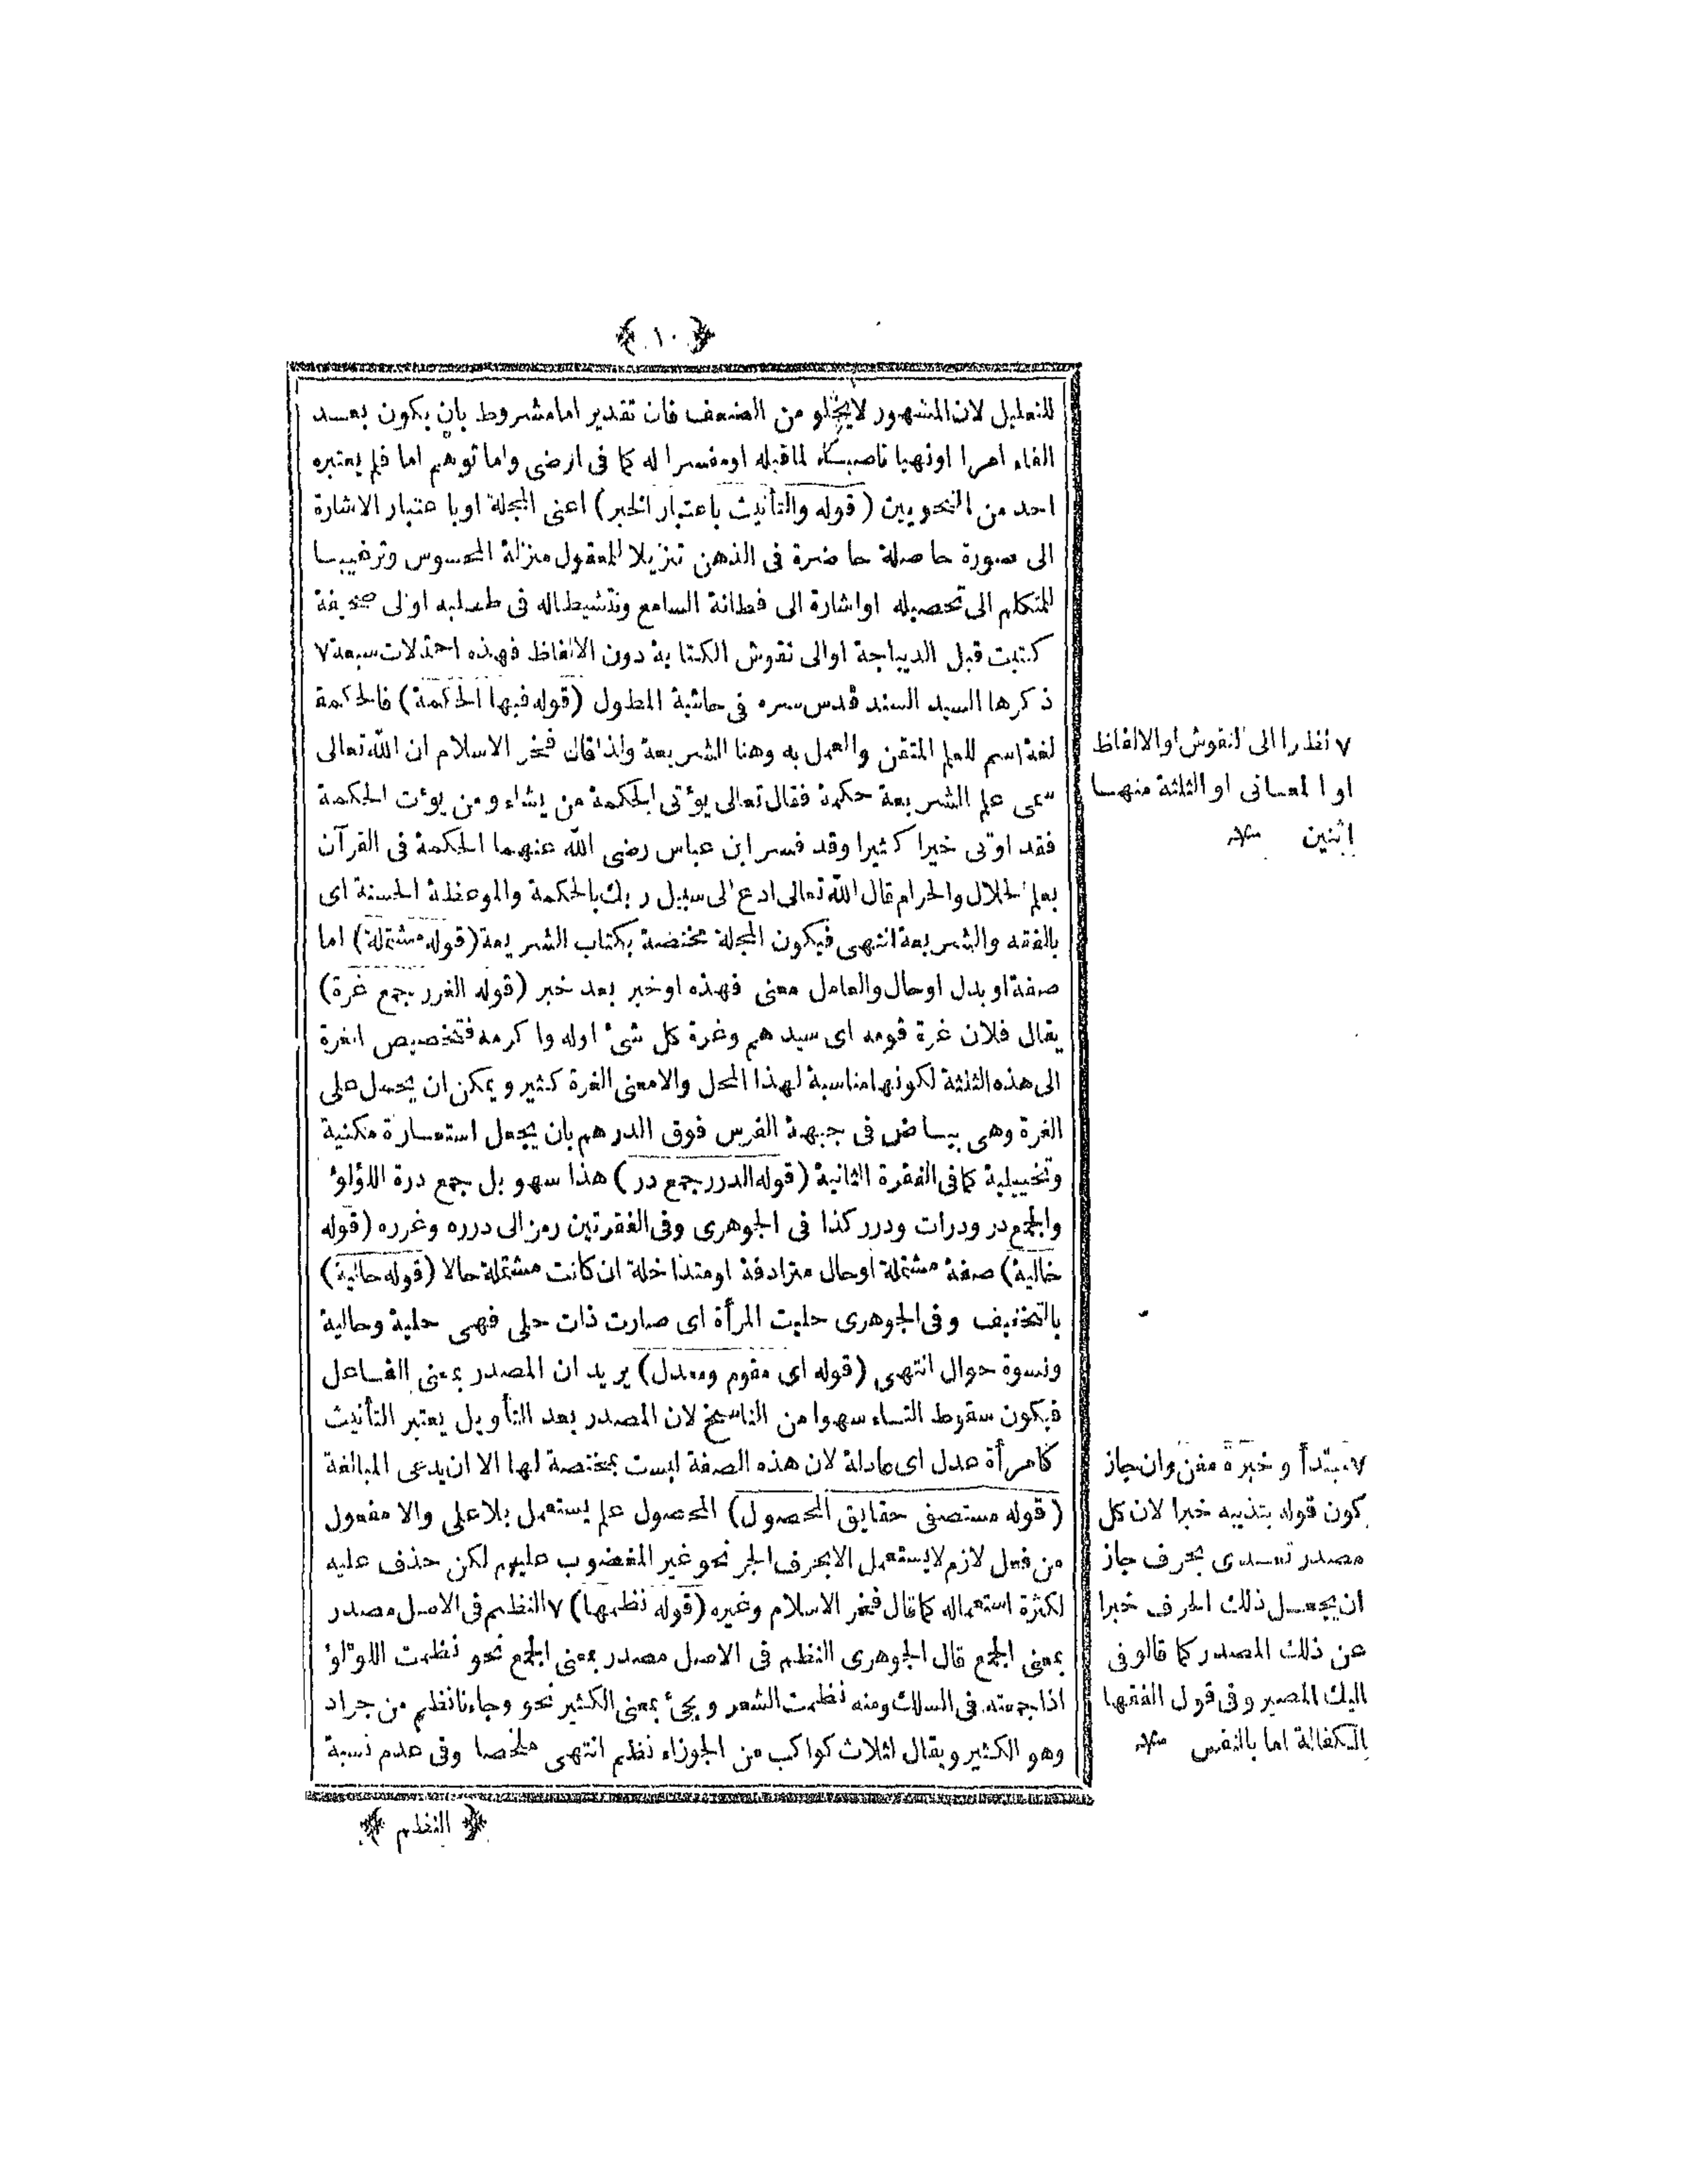 ﴿ ١٠ ﴾
للتعليل لان المشهور لا يخلو من الضعف فان تقدير اما مشروط بان يكون بعد
الفاء امرا او نهيا ناصبا لما قبله او مفسرا له كما فى الرضى واما توهم اما فلم يعتبره
احد من النحويين (قوله والتأنيث باعتبار الخبر) اعنى المجلة او باعتبار الاشارة
الى صورة حاصلة حاضرة فى الذهن تنزيلا للمعقول منزلة المحسوس وترغيبا
للمتكلم الى تحصيله او اشارة الى فطانة السامع وتنشيطا له فى طلبه او الى صحيفة
كتبت قبل الديباجة او الى نقوش الكتابة دون الالفاظ فهذه احتمالات سبعة ٧
ذكرها السيد السند قدس سره فى حاشية المطول (قوله فيها الحكمة) فالحكمة
لغة اسم للعلم المتقن والعمل به وهنا الشريعة ولذا قال فخر الاسلام ان الله تعالى
سمى علم الشريعة حكمة فقال تعالى يؤتى الحكمة من يشاء ومن يؤت الحكمة
فقد اوتى خيرا كثيرا وقد فسر ابن عباس رضى الله عنهما الحكمة فى القرآن
بعلم الحلال والحرام قال الله تعالى ادع الى سبيل ربك بالحكمة والموعظة الحسنة اى
بالفقه والشريعة انتهى فيكون المجلة مختصة بكتاب الشريعة (قوله مشتملة) اما
صفة او بدل او حال والعامل معنى فهذه او خبر بعد خبر (قوله الغرر جمع غرة)
يقال فلان غرة قومه اى سيدهم وغرة كل شئ اوله واكرمه فتخصيص الغرة
الى هذه الثلثة لكونها مناسبة لهذا المحل والا معنى الغرة كثير ويمكن ان يحمل على
الغرة وهى بياض فى جبهة الفرس فوق الدرهم بان يجعل استعارة مكنية
وتخييلية كما فى الفقرة الثانية (قوله الدرر جمع در) هذا سهو بل جمع درة اللؤلؤ
والجمع در ودرات ودرر كذا فى الجوهرى وفى الفقرتين رمز الى درره وغرره (قوله
خالية) صفة مشتملة او حال مترادفة او متداخلة ان كانت مشتملة حالا (قوله حالية)
بالتخفيف وفى الجوهرى حليت المرأة اى صارت ذات حلى فهى حلية وحالية
ونسوة حوال انتهى (قوله اى مقوم ومعدل) يريد ان المصدر بمعنى الفاعل
فيكون سقوط التاء سهوا من الناسخ لان المصدر بعد التأويل يعتبر التأنيث
كامرأة عدل اى عادلة لان هذه الصفة ليست بمختصة لها الا ان يدعى المبالغة
(قوله مستصفى حقايق المحصول) المحصول علم يستعمل بلا على والا مفعول
من فعل لازم لا يستعمل الا بحرف الجر نحو غير المغضوب عليهم لكن حذف عليه
لكثرة استعماله كما قال فخر الاسلام وغيره (قوله نظمها) ٧ النظم فى الاصل مصدر
بمعنى الجمع قال الجوهرى النظم فى الاصل مصدر بمعنى الجمع نحو نظمت اللؤلؤ
اذا جمعته فى السلك ومنه نظمت الشعر ويجئ بمعنى الكثير نحو وجاءنا نظم من جراد
وهو الكثير ويقال لثلاث كواكب من الجوزاء نظم انتهى ملخصا وفى عدم نسبة
﴿ النظم ﴾
٧ نظرا الى النقوش او الالفاظ
او المعانى او الثلثة منها
اثنين
٧ مبتدأ وخبره مفن وان جاز
كون قوله بتذييه خبرا لان كل
مصدر تعدى بحرف جاز
ان يجعل ذلك الحرف خبرا
عن ذلك المصدر كما قالو فى
اليك المصير وفى قول الفقها
الكفالة اما بالنفس